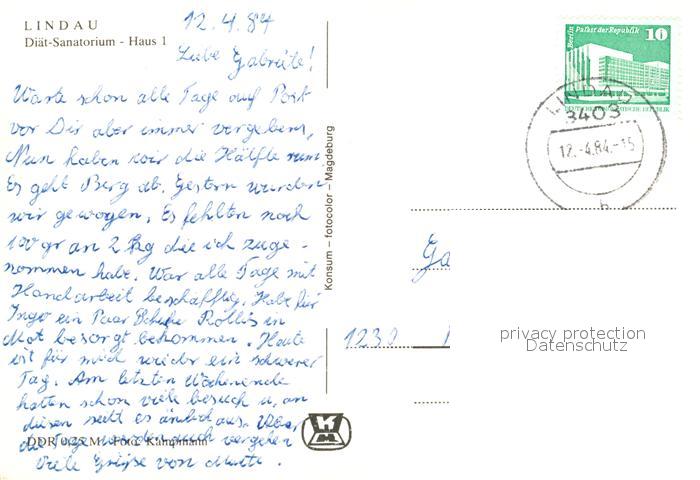 LINDAU
Diät-Sanatorium - Haus 1
12.4.84
Liebe Gabriele!
Warte schon alle Tage auf Post
von Dir aber immer vergebens,
Nun haben wir die Hälfte rum.
Es geht Berg ab. Gestern wurden
wir gewogen, Es fehlten noch
100 gr an 2 Kg die ich zuge-
nommen habe. War alle Tage mit
Handarbeit beschäftig. Habe für
Ingo ein Paar Rollis in
besorgt bekommen. Heute
ist für mich wieder ein schwerer
Tag. Am letzten Wochenende
hatten schon viele besuch u, an
diesen sieht es änlich aus. Aber
die Tage werden auch vergehen
Viele Grüße von Mutti.
DDR 0,25 M Foto: Kampmann
Konsum – fotocolor – Magdeburg
KM
Berlin Palast der Republik
10
DEUTSCHE DEMOKRATISCHE REPUBLIK
LINDAU
3403
12.-4.84.-15
b
Ga
1230
privacy protection
Datenschutz